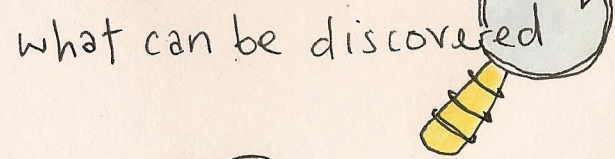 what can be discovered